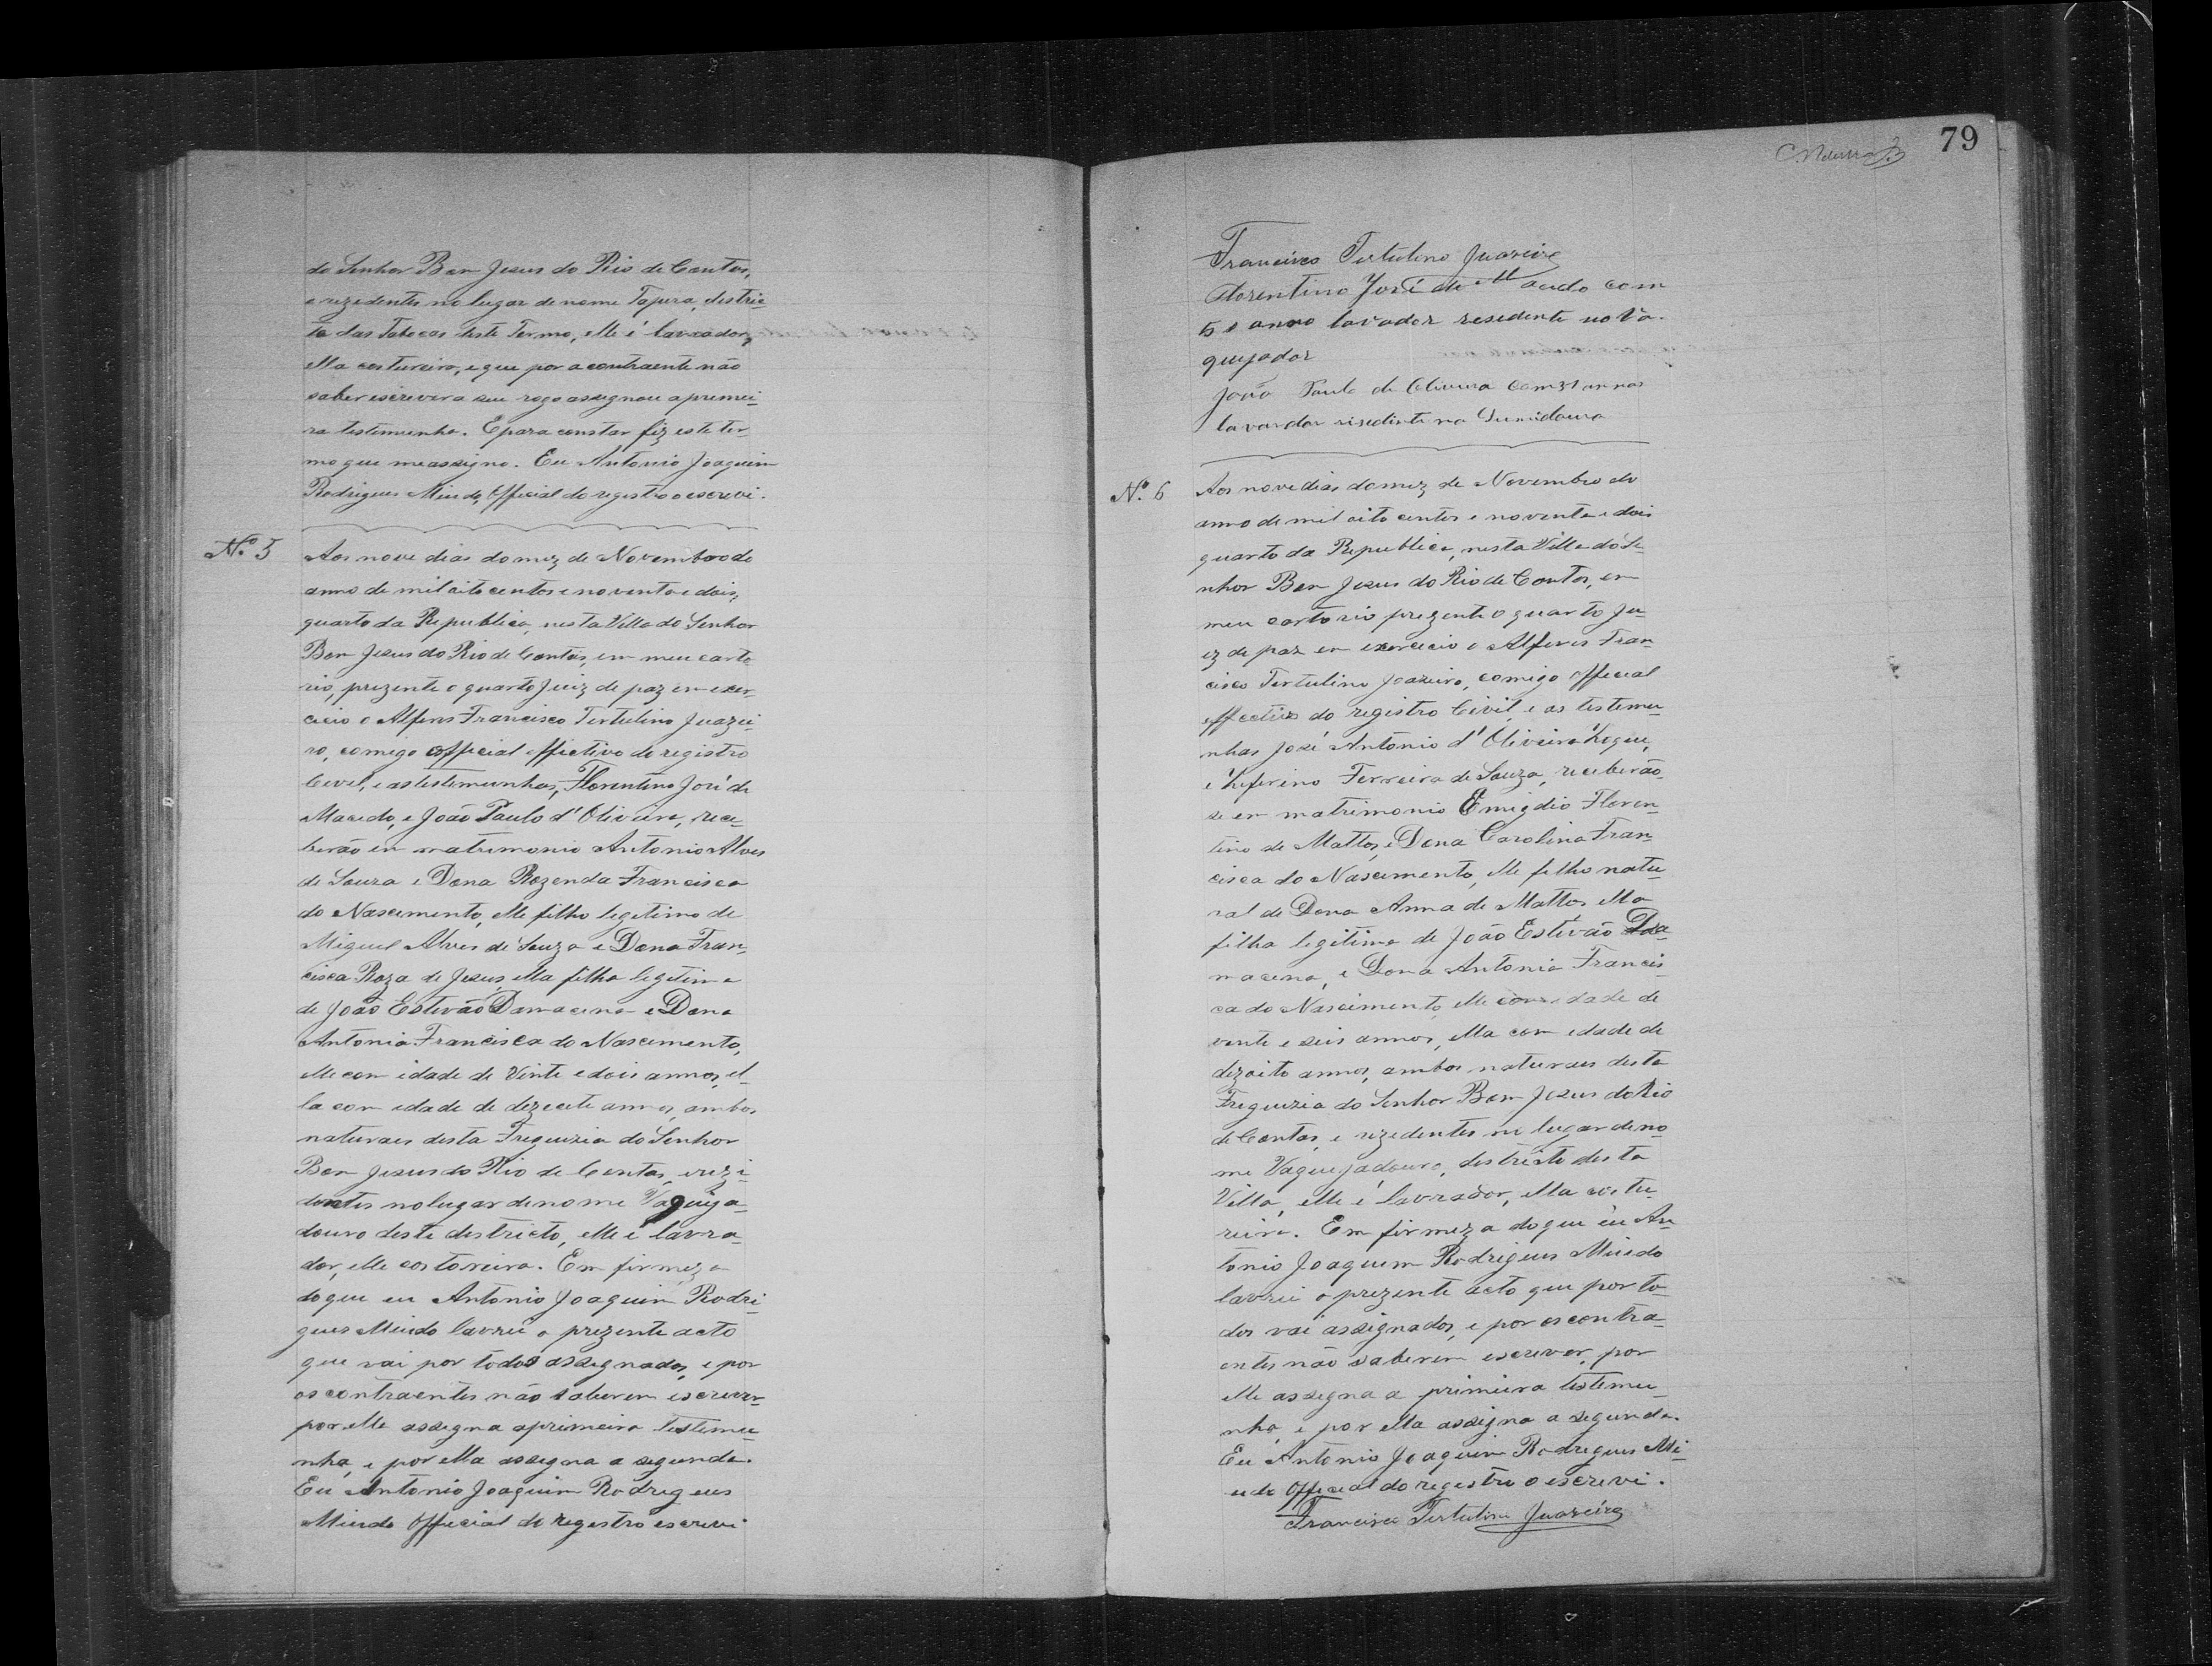 do Senhor Bom Jesus do Rio de Contas,
e rezedentes no lugar de nome Tapera, destric
to das Tabocas deste Termo, elle é lavrador,
ella costureira, e que por a contraente não
saber escrever a seu rogo assegnou a premei
ra testemunha. E para constar fiz este ter
mo que me assigno. Eu Antonio Joaquim
Rodrigues Miudo, Official do registro o escrevi.
Nº 5
Aos nove dias do mez de Novembro do
anno de mil oito centos e noventa e dois,
quarto da Republica, nesta Villa do Senhor
Bom Jesus do Rio de Contas, em meu carto
rio, prezente o quarto Juiz de paz em exer
cicio o Alferes Francisco Tertulino Juazei
ro, comigo official effictivo do registro
Cevel, e as testemunhas, Florentino José de
Macedo, e João Paulo d'Oliveira, rece
berão em matrimonio Antonio Alves
de Souza e Dona Rozenda Francisca
do Nascemento, elle filho legetimo de
Miguel Alves de Souza e Dona Fran
cisca Roza de Jesus, ella filha legetima
de João Estevão Damacena e Dona
Antonia Francisca do Nascemento,
elle com idade de Vinte e dois annos, el
la com edade de dezecete annos, ambos
naturaes desta Freguizia do Senhor
Bom Jesus do Rio de Contas, e rezi
dentes no lugar de nome Vaqueja
douro deste destricto, elle é lavra
dor, elle costoreira. Em firmeza
do que eu Antonio Joaquim Rodri
gues Miudo lavrei o prezente acto
que vai por todos assegnados, e por
os contraentes não saberem escrever
por elle assegna a primeira testemu
nha, e por ella assegna a segunda.
Eu Antonio Joaquim Rodrigues
Miudo Official do registro escrevi
79
Francisco Tertulino Juazeiro
Florentino José de Macedo com
anno lavador resedente no Va
quejador
João Paulo de Oliveira com 31 annos
lavardor risedinte no Sumidouro
Nº 6
Aos nove dias do mez de Novembro do
anno de mil oito centos e noventa e dois
quarto da Republica, nesta Villa do Se
nhor Bom Jesus do Rio de Contas, em
meu cartorio prezente o quarto Ju
ez de paz em exercicio o Alferes Fran
cisco Tertulino Joazeiro, comigo official
effectivo do registro Civil, e as testemu
nhas José Antonio d'Oliveira Roque,
e Zeferino Ferreira de Souza, receberão
se em matrimonio Emigdio Floren
tino de Mattos, e Dona Carolina Fran
cisca do Nascemento, elle filho natu
ral de Dona Anna de Mattos ella
filha legitima de João Estevão Da
macena, e Dona Antonia Francis
ca do Nascimento, elle com edade de
vente e seis annos, ella com edade de
dezoito annos, ambos naturaes desta
Freguizia do Senhor Bom Jesus do Rio
de Contas, e rezedentes no lugar de no
me Vaquejadouro, destricto desta
Villa, elle é lavrador, ella costu
reira. Em firmeza do que eu An
tonio Joaquim Rodrigues Miudo
lavrei o prezente acto que por to
dos vai assignados, e por os contra
entes não saberem escrever, por
elle assegna a primeira testemu
nha, e por ella assigna a segunda.
Eu Antonio Joaquim Rodrigues Mi
udo Official do registro o escrevi.
Francisco Tertulino Juazeiro